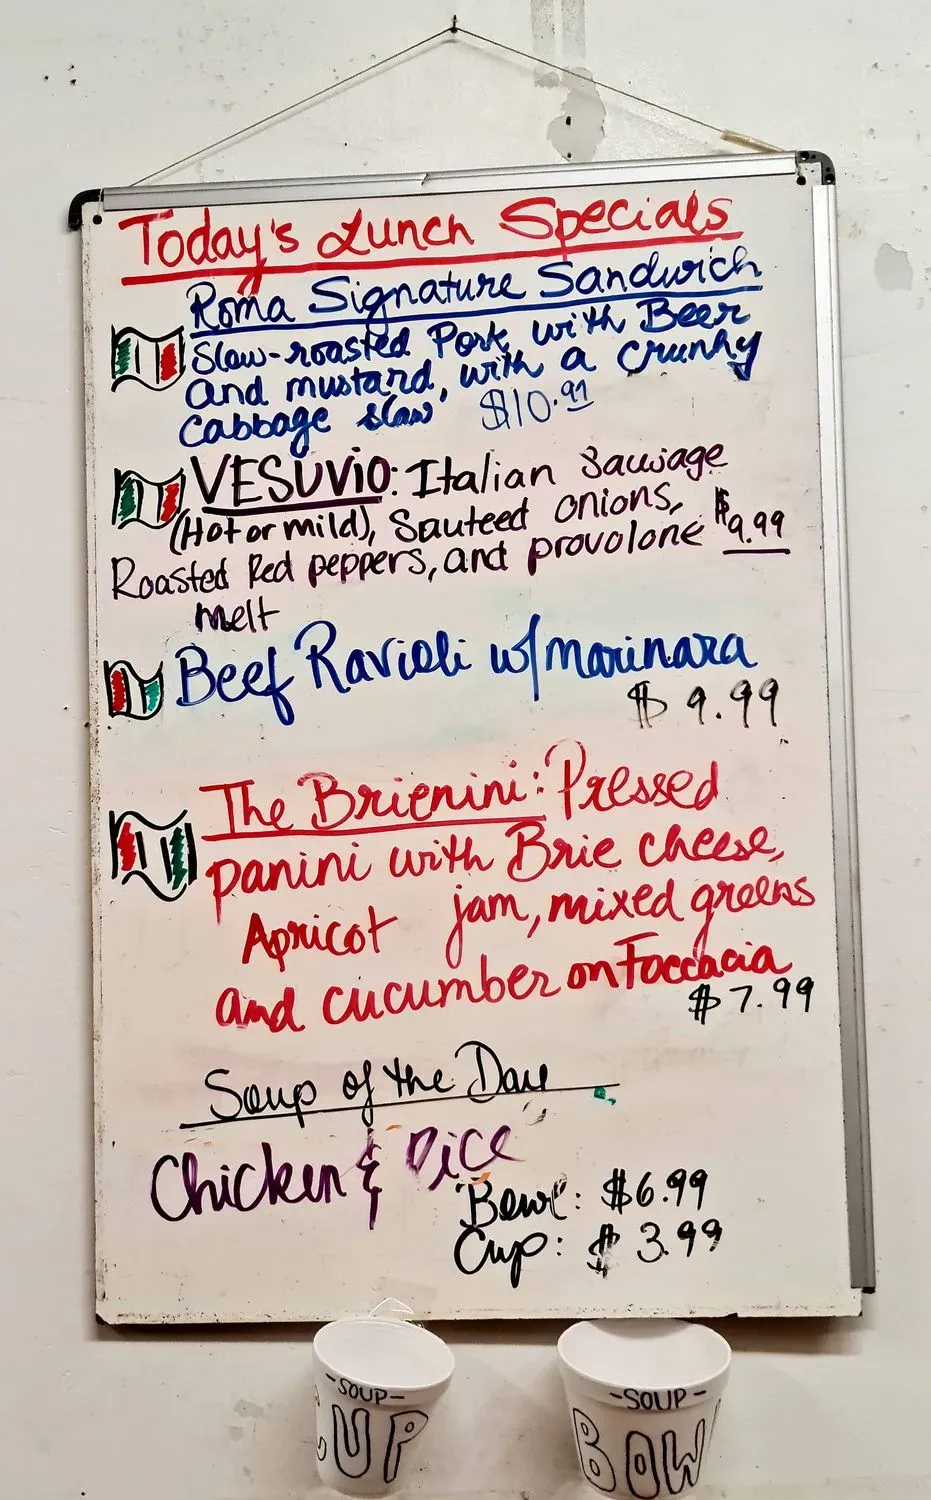 Today's Lunch Specials
Roma Signature Sandwich
Slow-roasted Pork with Beer
and mustard, with a crunhy
Cabbage slaw $10.99
VESUVIO: Italian Sausage
(Hot or mild), Sauteed onions,
Roasted Red peppers, and provolone $9.99
melt
Beef Ravioli w/marinara
$ 9.99
The Brienini: Pressed
panini with Brie cheese,
Apricot jam, mixed greens
and cucumber on Foccacia
$ 7.99
Soup of the Day
Chicken & Rice
Bowl: $6.99
Cup: $ 3.99
-SOUP-
CUP
-SOUP-
BOW